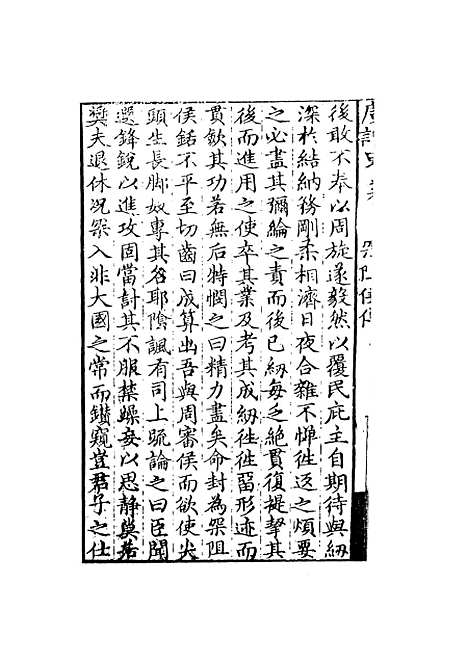 後敢不奉以周旋遂毅然以覆民庇主自期待與紉
深於結納務剛柔相濟日夜合雜不憚徃返之煩要
之必盡其彌綸之責而後已紉每之絶貫復提挈其
後而進用之使卒其業及考其成紉徃徃畱形迹而
貫歛其功若無后特憫之曰精力盡矣命封為槃阻
侯銛不平至切齒曰成算出吾與周審侯而欲使尖
頭生長脚奴專其名耶隂諷有司上疏論之曰臣聞
選鋒銳以進攻固當討其不服禁躁妄以思静莫若
奬夫退休况槃入非大國之常而鑚窺豈君子之仕